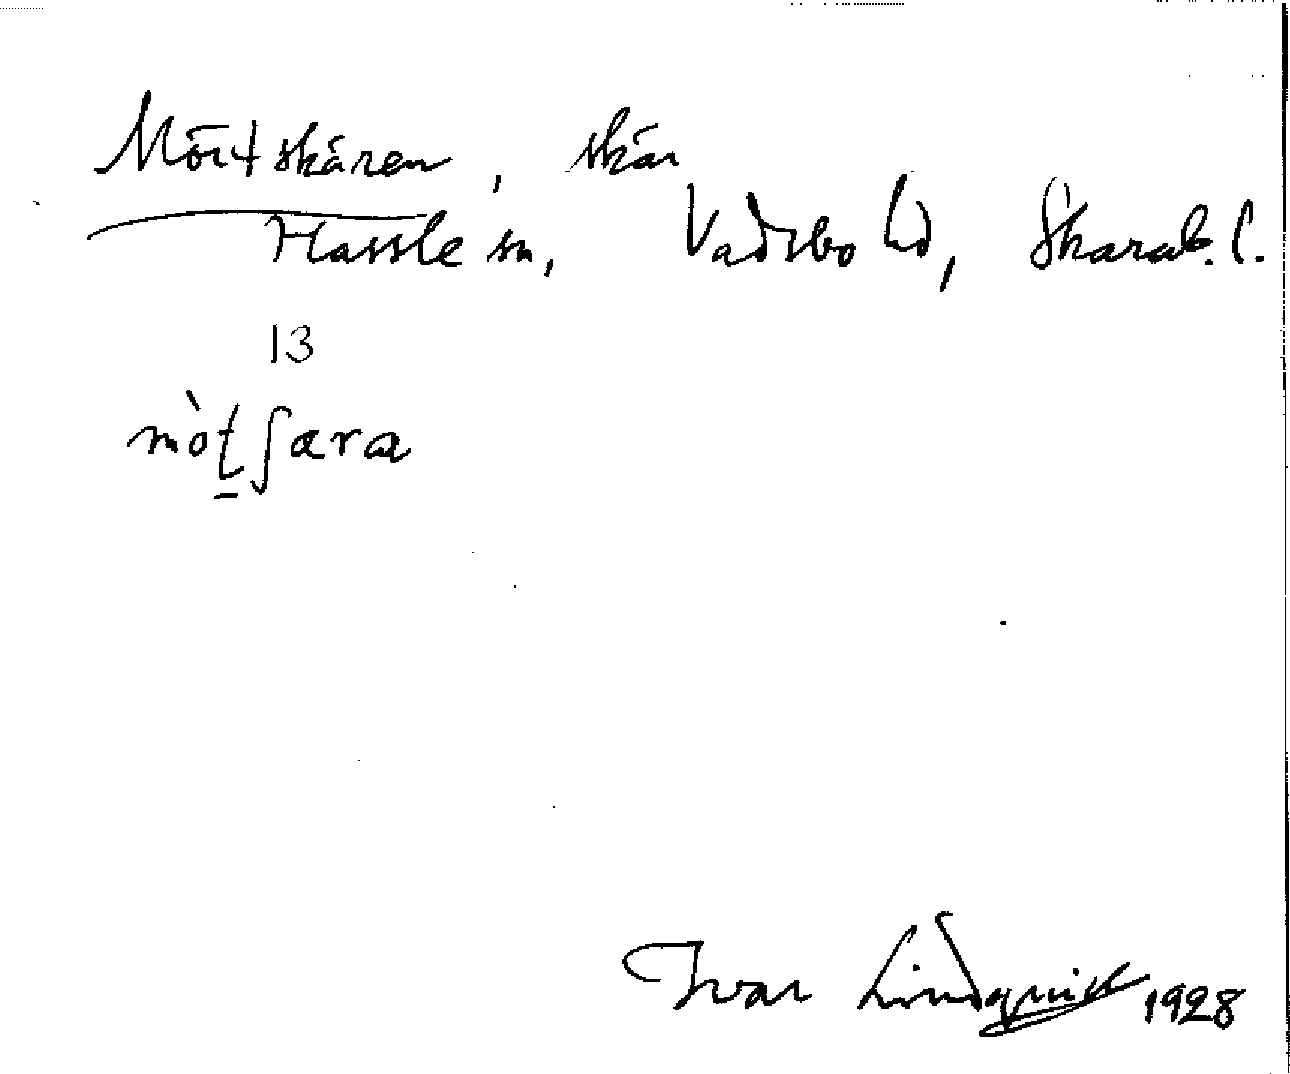 Mörtskären, skär
Hassle sn, Vadsbo hd, Skarab. l.
13
mòt̠ʃæra
Ivar Lindquist 1928